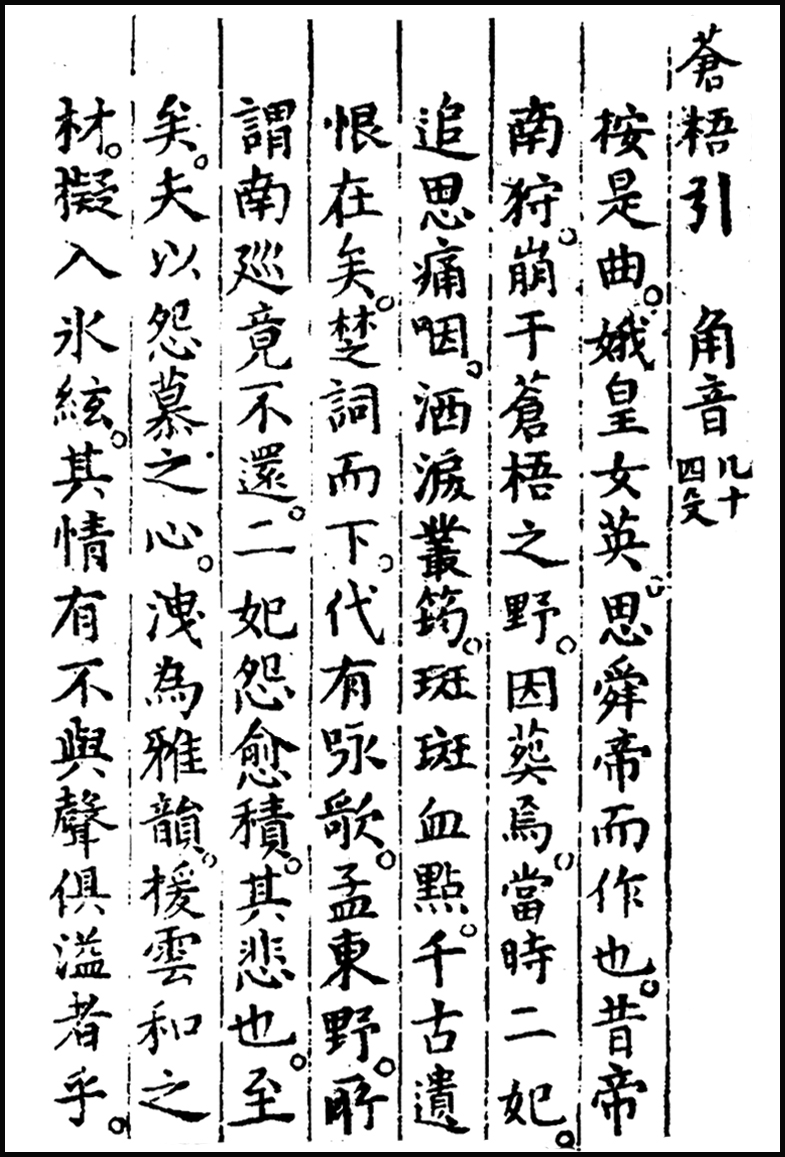 蒼梧引　角音　凡十四段
按是曲。娥皇女英。思舜帝而作也。昔帝
南狩。崩于蒼梧之野。因葬焉。當時二妃。
追思痛咽。洒淚叢筠。斑斑血點。千古遺
恨在矣。楚詞而下。代有咏歌。孟東野。所
謂南巡竟不還。二妃怨愈積。其悲也。至
矣。夫以怨慕之心。洩為雅韻。援雲和之
材。擬入氷絃。其情有不與聲俱溢者乎。